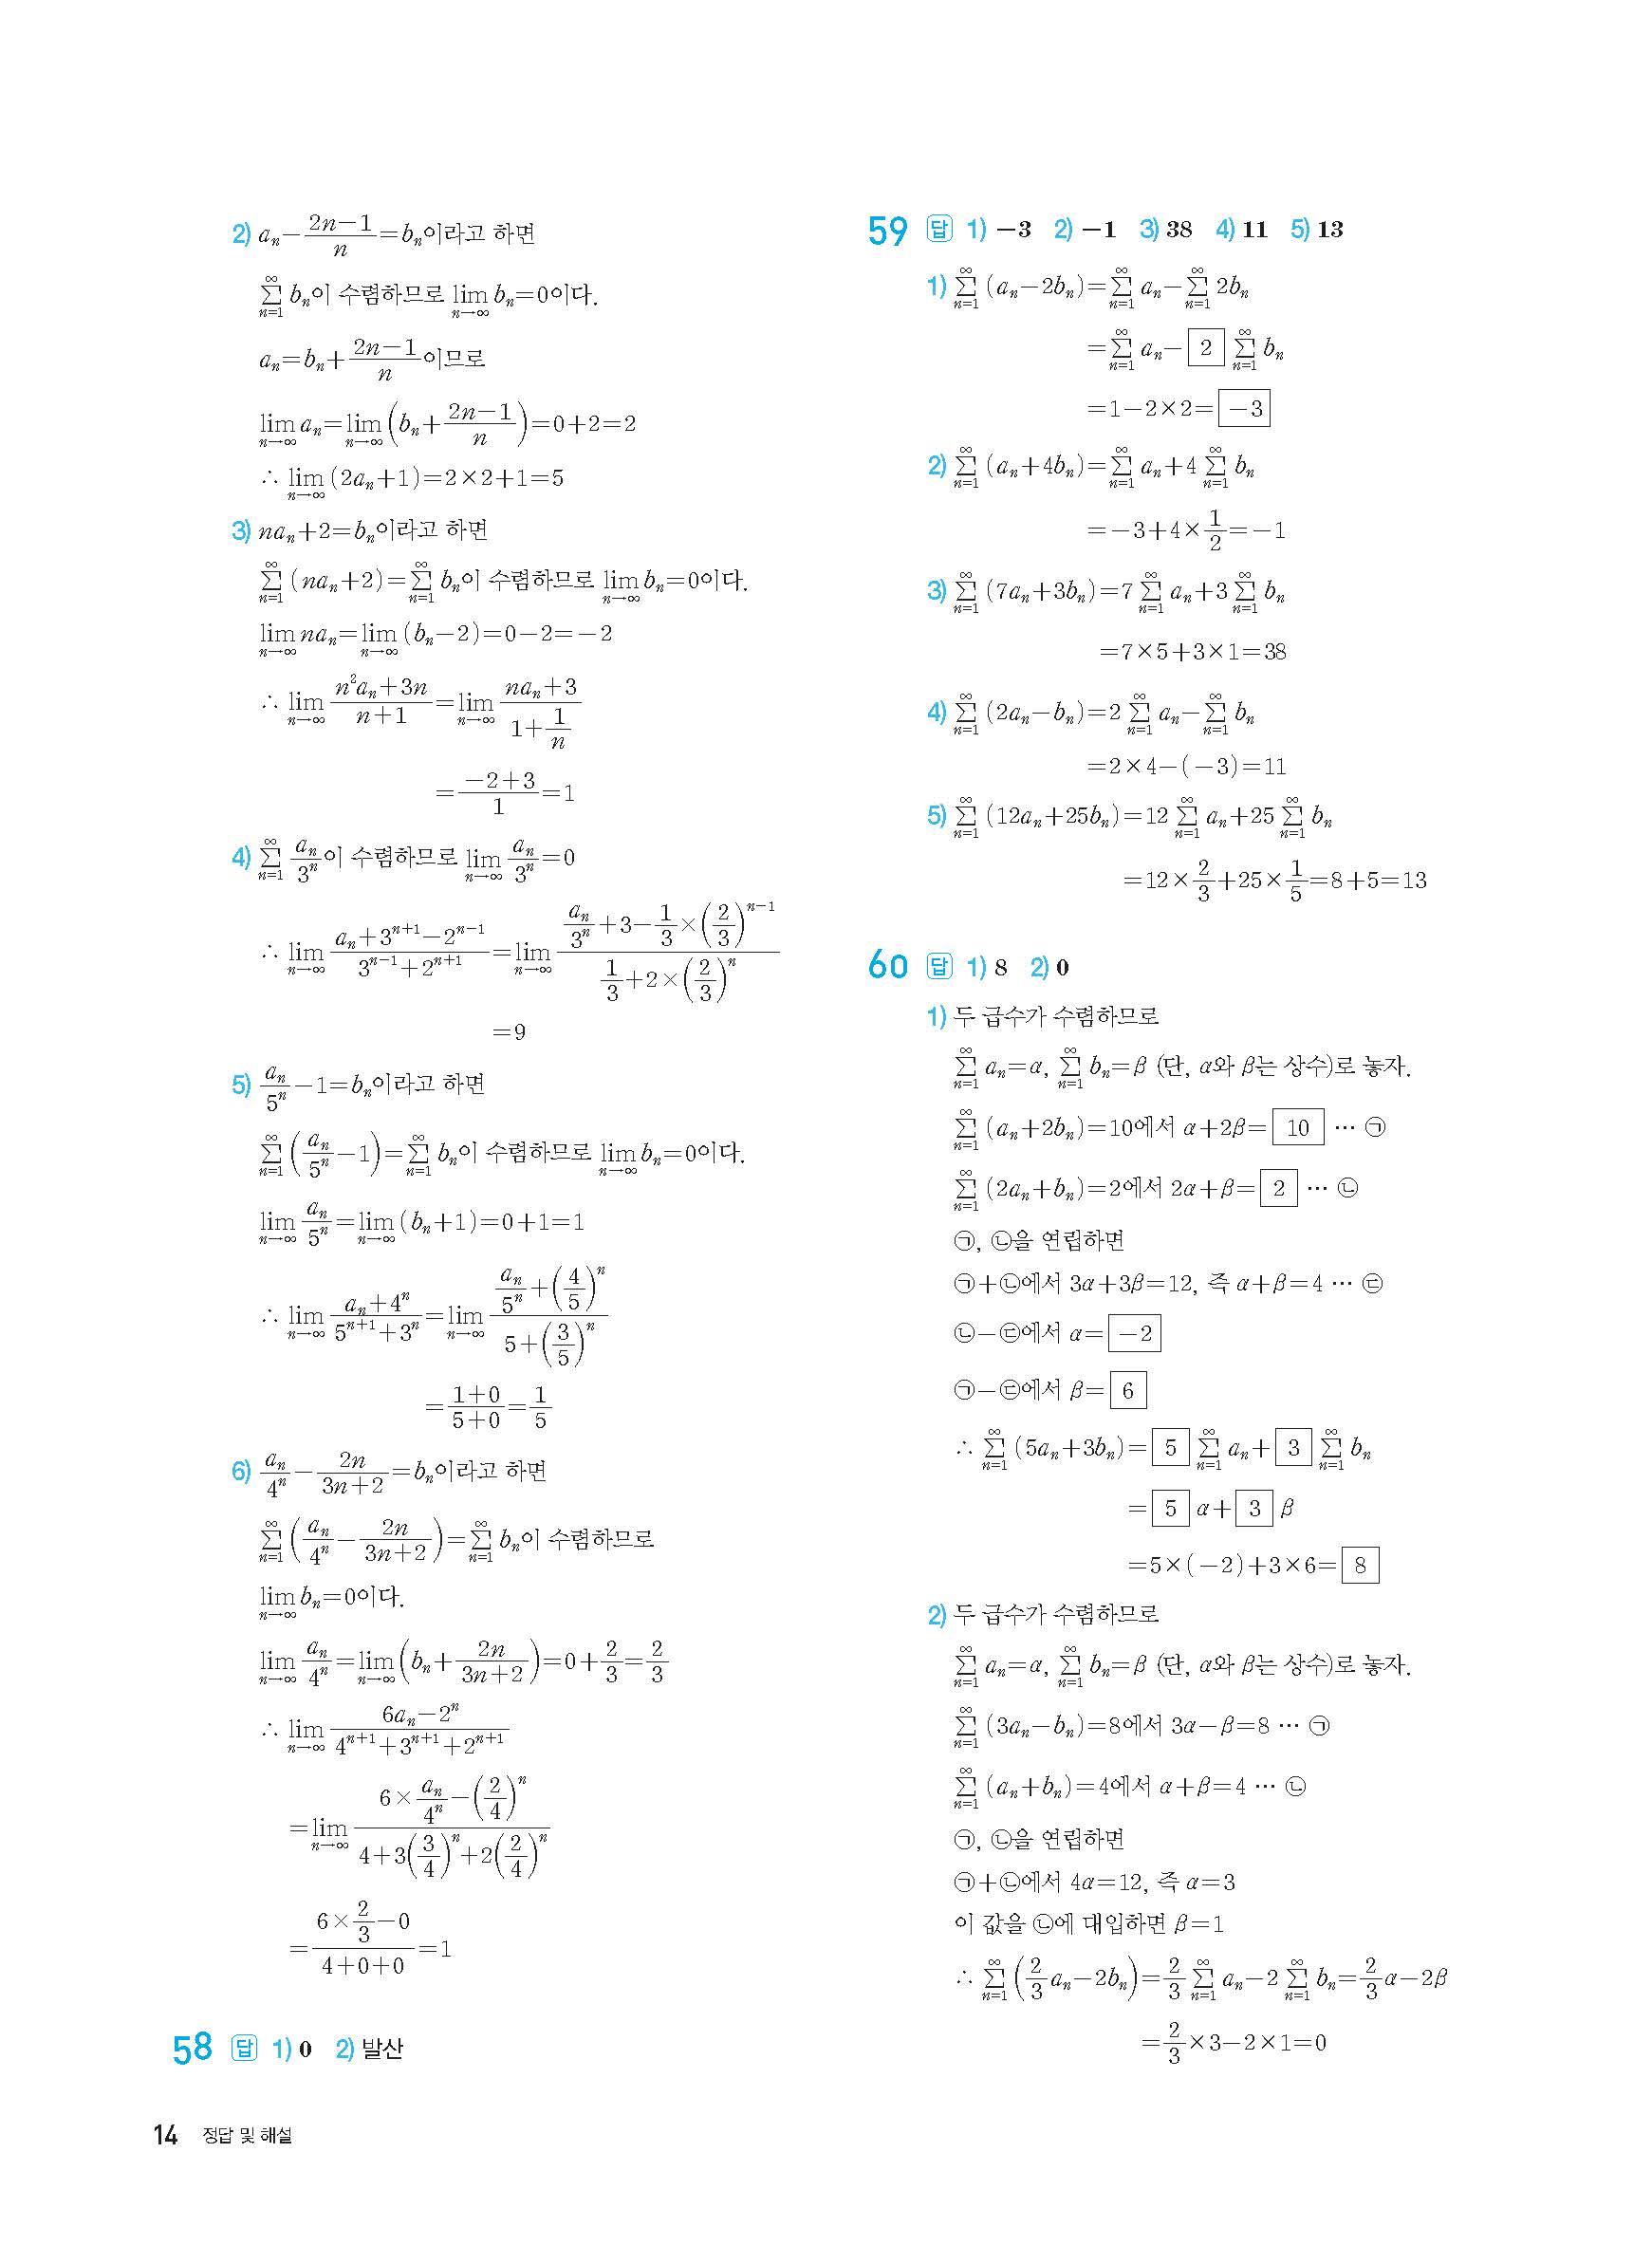 2) aₙ−(2n−1)/n=bₙ이라고 하면
∑_{n=1}^{∞} bₙ이 수렴하므로 lim_{n→∞} bₙ=0이다.
aₙ=bₙ+(2n−1)/n이므로
lim_{n→∞} aₙ=lim_{n→∞} (bₙ+(2n−1)/n)=0+2=2
∴ lim_{n→∞} (2aₙ+1)=2×2+1=5
3) naₙ+2=bₙ이라고 하면
∑_{n=1}^{∞} (naₙ+2)=∑_{n=1}^{∞} bₙ이 수렴하므로 lim_{n→∞} bₙ=0이다.
lim_{n→∞} naₙ=lim_{n→∞} (bₙ−2)=0−2=−2
∴ lim_{n→∞} (n²aₙ+3n)/(n+1)=lim_{n→∞} (naₙ+3)/(1+1/n)
=(−2+3)/1=1
4) ∑_{n=1}^{∞} aₙ/3ⁿ이 수렴하므로 lim_{n→∞} aₙ/3ⁿ=0
∴ lim_{n→∞} (aₙ+3^{n+1}−2^{n−1})/(3^{n−1}+2^{n+1})=lim_{n→∞} (aₙ/3ⁿ+3−1/3×(2/3)^{n−1})/(1/3+2×(2/3)ⁿ)
=9
5) aₙ/5ⁿ−1=bₙ이라고 하면
∑_{n=1}^{∞} (aₙ/5ⁿ−1)=∑_{n=1}^{∞} bₙ이 수렴하므로 lim_{n→∞} bₙ=0이다.
lim_{n→∞} aₙ/5ⁿ=lim_{n→∞} (bₙ+1)=0+1=1
∴ lim_{n→∞} (aₙ+4ⁿ)/(5^{n+1}+3ⁿ)=lim_{n→∞} (aₙ/5ⁿ+(4/5)ⁿ)/(5+(3/5)ⁿ)
=(1+0)/(5+0)=1/5
6) aₙ/4ⁿ−2n/(3n+2)=bₙ이라고 하면
∑_{n=1}^{∞} (aₙ/4ⁿ−2n/(3n+2))=∑_{n=1}^{∞} bₙ이 수렴하므로
lim_{n→∞} bₙ=0이다.
lim_{n→∞} aₙ/4ⁿ=lim_{n→∞} (bₙ+2n/(3n+2))=0+2/3=2/3
∴ lim_{n→∞} (6aₙ−2ⁿ)/(4^{n+1}+3^{n+1}+2^{n+1})
=lim_{n→∞} (6×aₙ/4ⁿ−(2/4)ⁿ)/(4+3(3/4)ⁿ+2(2/4)ⁿ)
=(6×2/3−0)/(4+0+0)=1
58 답 1) 0 2) 발산
59 답 1) −3 2) −1 3) 38 4) 11 5) 13
1) ∑_{n=1}^{∞} (aₙ−2bₙ)=∑_{n=1}^{∞} aₙ−∑_{n=1}^{∞} 2bₙ
=∑_{n=1}^{∞} aₙ− 2 ∑_{n=1}^{∞} bₙ
=1−2×2= −3
2) ∑_{n=1}^{∞} (aₙ+4bₙ)=∑_{n=1}^{∞} aₙ+4 ∑_{n=1}^{∞} bₙ
=−3+4×1/2=−1
3) ∑_{n=1}^{∞} (7aₙ+3bₙ)=7 ∑_{n=1}^{∞} aₙ+3 ∑_{n=1}^{∞} bₙ
=7×5+3×1=38
4) ∑_{n=1}^{∞} (2aₙ−bₙ)=2 ∑_{n=1}^{∞} aₙ−∑_{n=1}^{∞} bₙ
=2×4−(−3)=11
5) ∑_{n=1}^{∞} (12aₙ+25bₙ)=12 ∑_{n=1}^{∞} aₙ+25 ∑_{n=1}^{∞} bₙ
=12×2/3+25×1/5=8+5=13
60 답 1) 8 2) 0
1) 두 급수가 수렴하므로
∑_{n=1}^{∞} aₙ=α, ∑_{n=1}^{∞} bₙ=β (단, α와 β는 상수)로 놓자.
∑_{n=1}^{∞} (aₙ+2bₙ)=10에서 α+2β= 10 … ㉠
∑_{n=1}^{∞} (2aₙ+bₙ)=2에서 2α+β= 2 … ㉡
㉠, ㉡을 연립하면
㉠+㉡에서 3α+3β=12, 즉 α+β=4 … ㉢
㉡−㉢에서 α= −2
㉠−㉢에서 β= 6
∴ ∑_{n=1}^{∞} (5aₙ+3bₙ)= 5 ∑_{n=1}^{∞} aₙ+ 3 ∑_{n=1}^{∞} bₙ
= 5 α+ 3 β
=5×(−2)+3×6= 8
2) 두 급수가 수렴하므로
∑_{n=1}^{∞} aₙ=α, ∑_{n=1}^{∞} bₙ=β (단, α와 β는 상수)로 놓자.
∑_{n=1}^{∞} (3aₙ−bₙ)=8에서 3α−β=8 … ㉠
∑_{n=1}^{∞} (aₙ+bₙ)=4에서 α+β=4 … ㉡
㉠, ㉡을 연립하면
㉠+㉡에서 4α=12, 즉 α=3
이 값을 ㉡에 대입하면 β=1
∴ ∑_{n=1}^{∞} (2/3 aₙ−2bₙ)=2/3 ∑_{n=1}^{∞} aₙ−2 ∑_{n=1}^{∞} bₙ=2/3 α−2β
=2/3×3−2×1=0
14 정답 및 해설